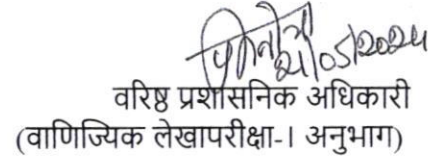 21/05/2024
वरिष्ठ प्रशासनिक अधिकारी
(वाणिज्यिक लेखापरीक्षा-I अनुभाग)